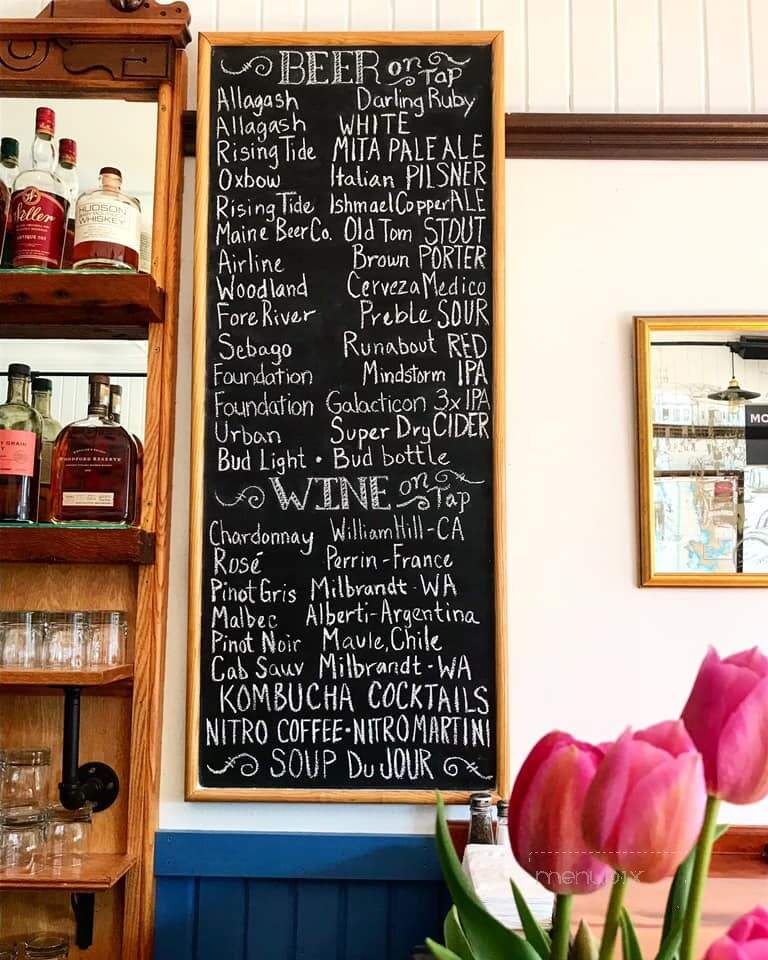 BEER on Tap
Allagash Darling Ruby
Allagash WHITE
Rising Tide MITA PALE ALE
Oxbow Italian PILSNER
Rising Tide Ishmael Copper ALE
Maine Beer Co. Old Tom STOUT
Airline Brown PORTER
Woodland Cerveza Medico
Fore River Preble SOUR
Sebago Runabout RED
Foundation Mindstorm IPA
Foundation Galacticon 3x IPA
Urban Super Dry CIDER
Bud Light • Bud bottle
WINE on Tap
Chardonnay William Hill - CA
Rosé Perrin - France
Pinot Gris Milbrandt - WA
Malbec Alberti - Argentina
Pinot Noir Maule, Chile
Cab Sauv Milbrandt - WA
KOMBUCHA COCKTAILS
NITRO COFFEE • NITRO MARTINI
SOUP Du JOUR
Weller
HUDSON
WHISKEY
GRAIN
WOODFORD RESERVE
MO
menupix